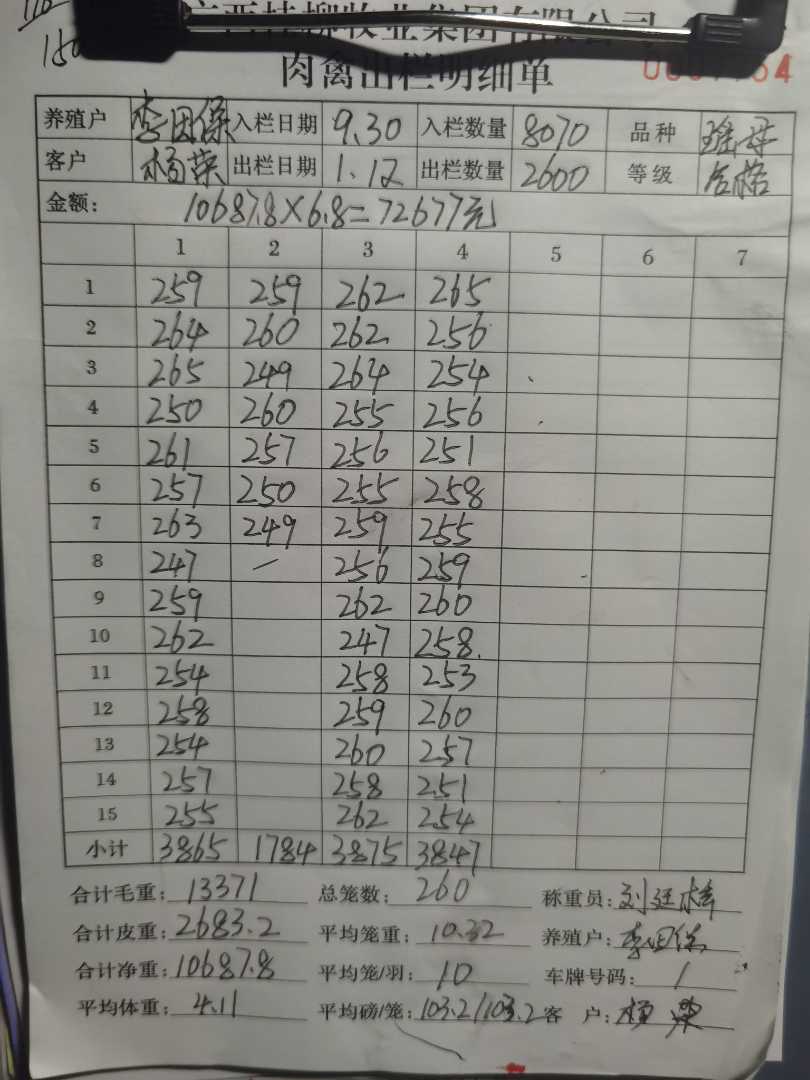 肉禽出栏明细单
养殖户 李因保 入栏日期 9.30 入栏数量 8070 品种
客户 杨荣 出栏日期 1.12 出栏数量 2600 等级 合格
金额: 10687.8×6.8=72677元
1 2 3 4 5 6 7
1 259 259 262 265
2 264 260 262 256
3 265 249 264 254
4 250 260 255 256
5 261 257 256 251
6 257 250 255 258
7 263 249 259 255
8 247 — 256 259
9 259 262 260
10 262 247 258
11 254 258 253
12 258 259 260
13 254 260 257
14 257 258 251
15 255 262 254
小计 3865 1784 3875 3847
合计毛重: 13371 总笼数: 260 称重员:
合计皮重: 2683.2 平均笼重: 10.32 养殖户: 李因保
合计净重: 10687.8 平均笼/羽: 10 车牌号码: /
平均体重: 4.11 平均磅/笼: 103.2/103.2 客 户: 杨荣